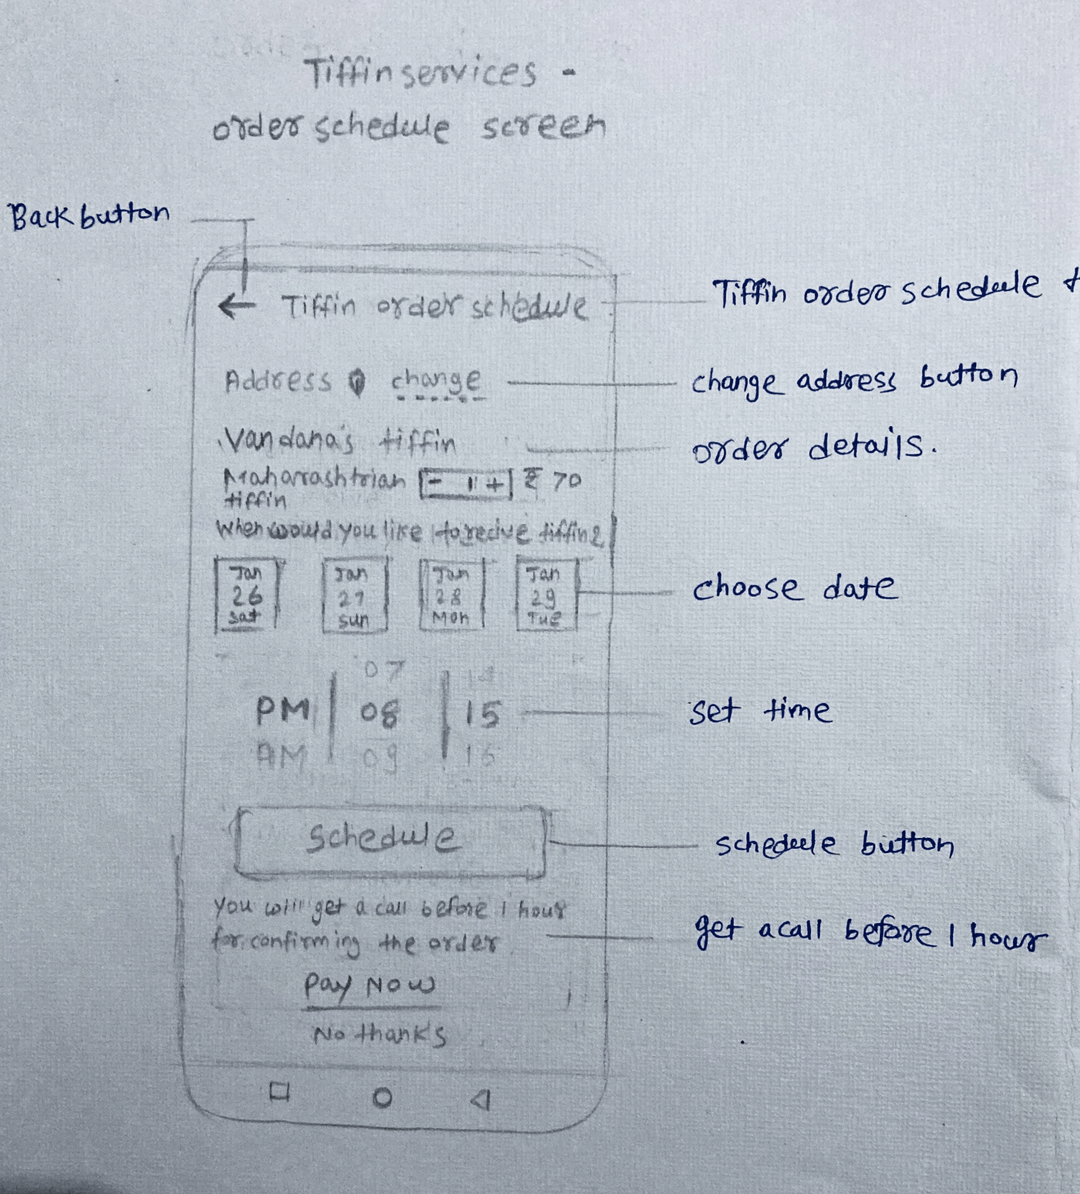 Tiffin services -
order schedule screen
Back button
← Tiffin order schedule
Tiffin order schedule
Address change
change address button
Vandana's tiffin
order details.
Maharashtrian [- 1 +] ₹ 70
tiffin
When would you like to recive tiffin?
Jan Jan Jan Jan
26 27 28 29
Sat Sun Mon Tue
choose date
07 14
PM 08 15
set time
AM 09 16
Schedule
schedule button
You will get a call before 1 hour
for confirming the order
get a call before 1 hour
Pay Now
No thanks